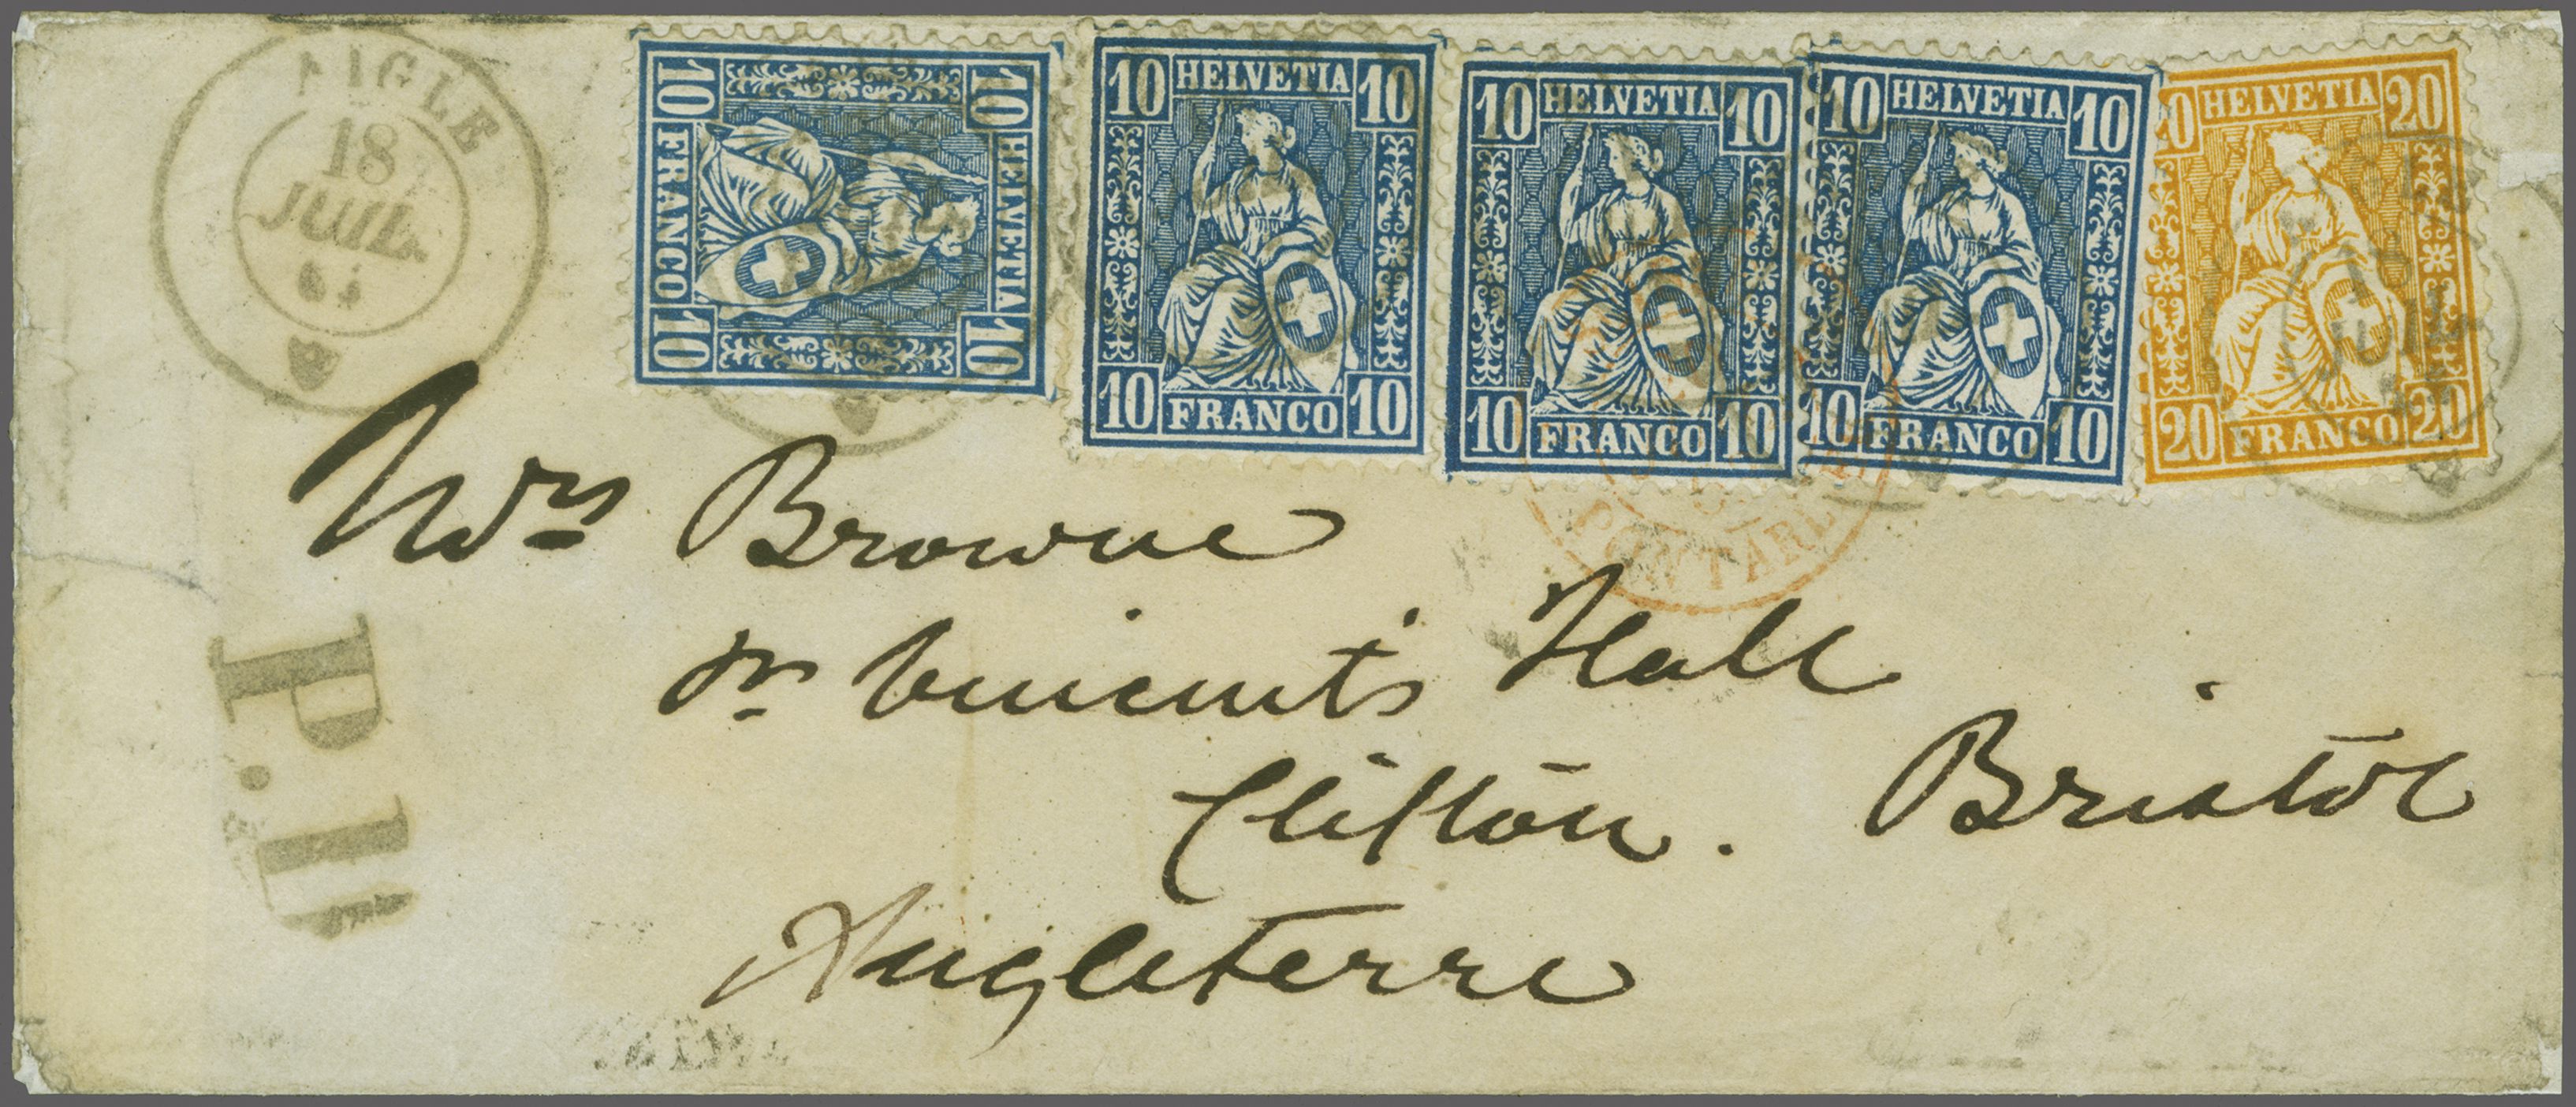 AIGLE
18
JUIL
10 HELVETIA 10
10 FRANCO 10
10 HELVETIA 10
10 FRANCO 10
10 HELVETIA 10
10 FRANCO 10
10 HELVETIA 10
10 FRANCO 10
0 HELVETIA 20
20 FRANCO 20
18
JUIL
PONTARL
Mrs Browne
Sr Vincent's Hall
Clifton. Bristol
Angleterre
P.D